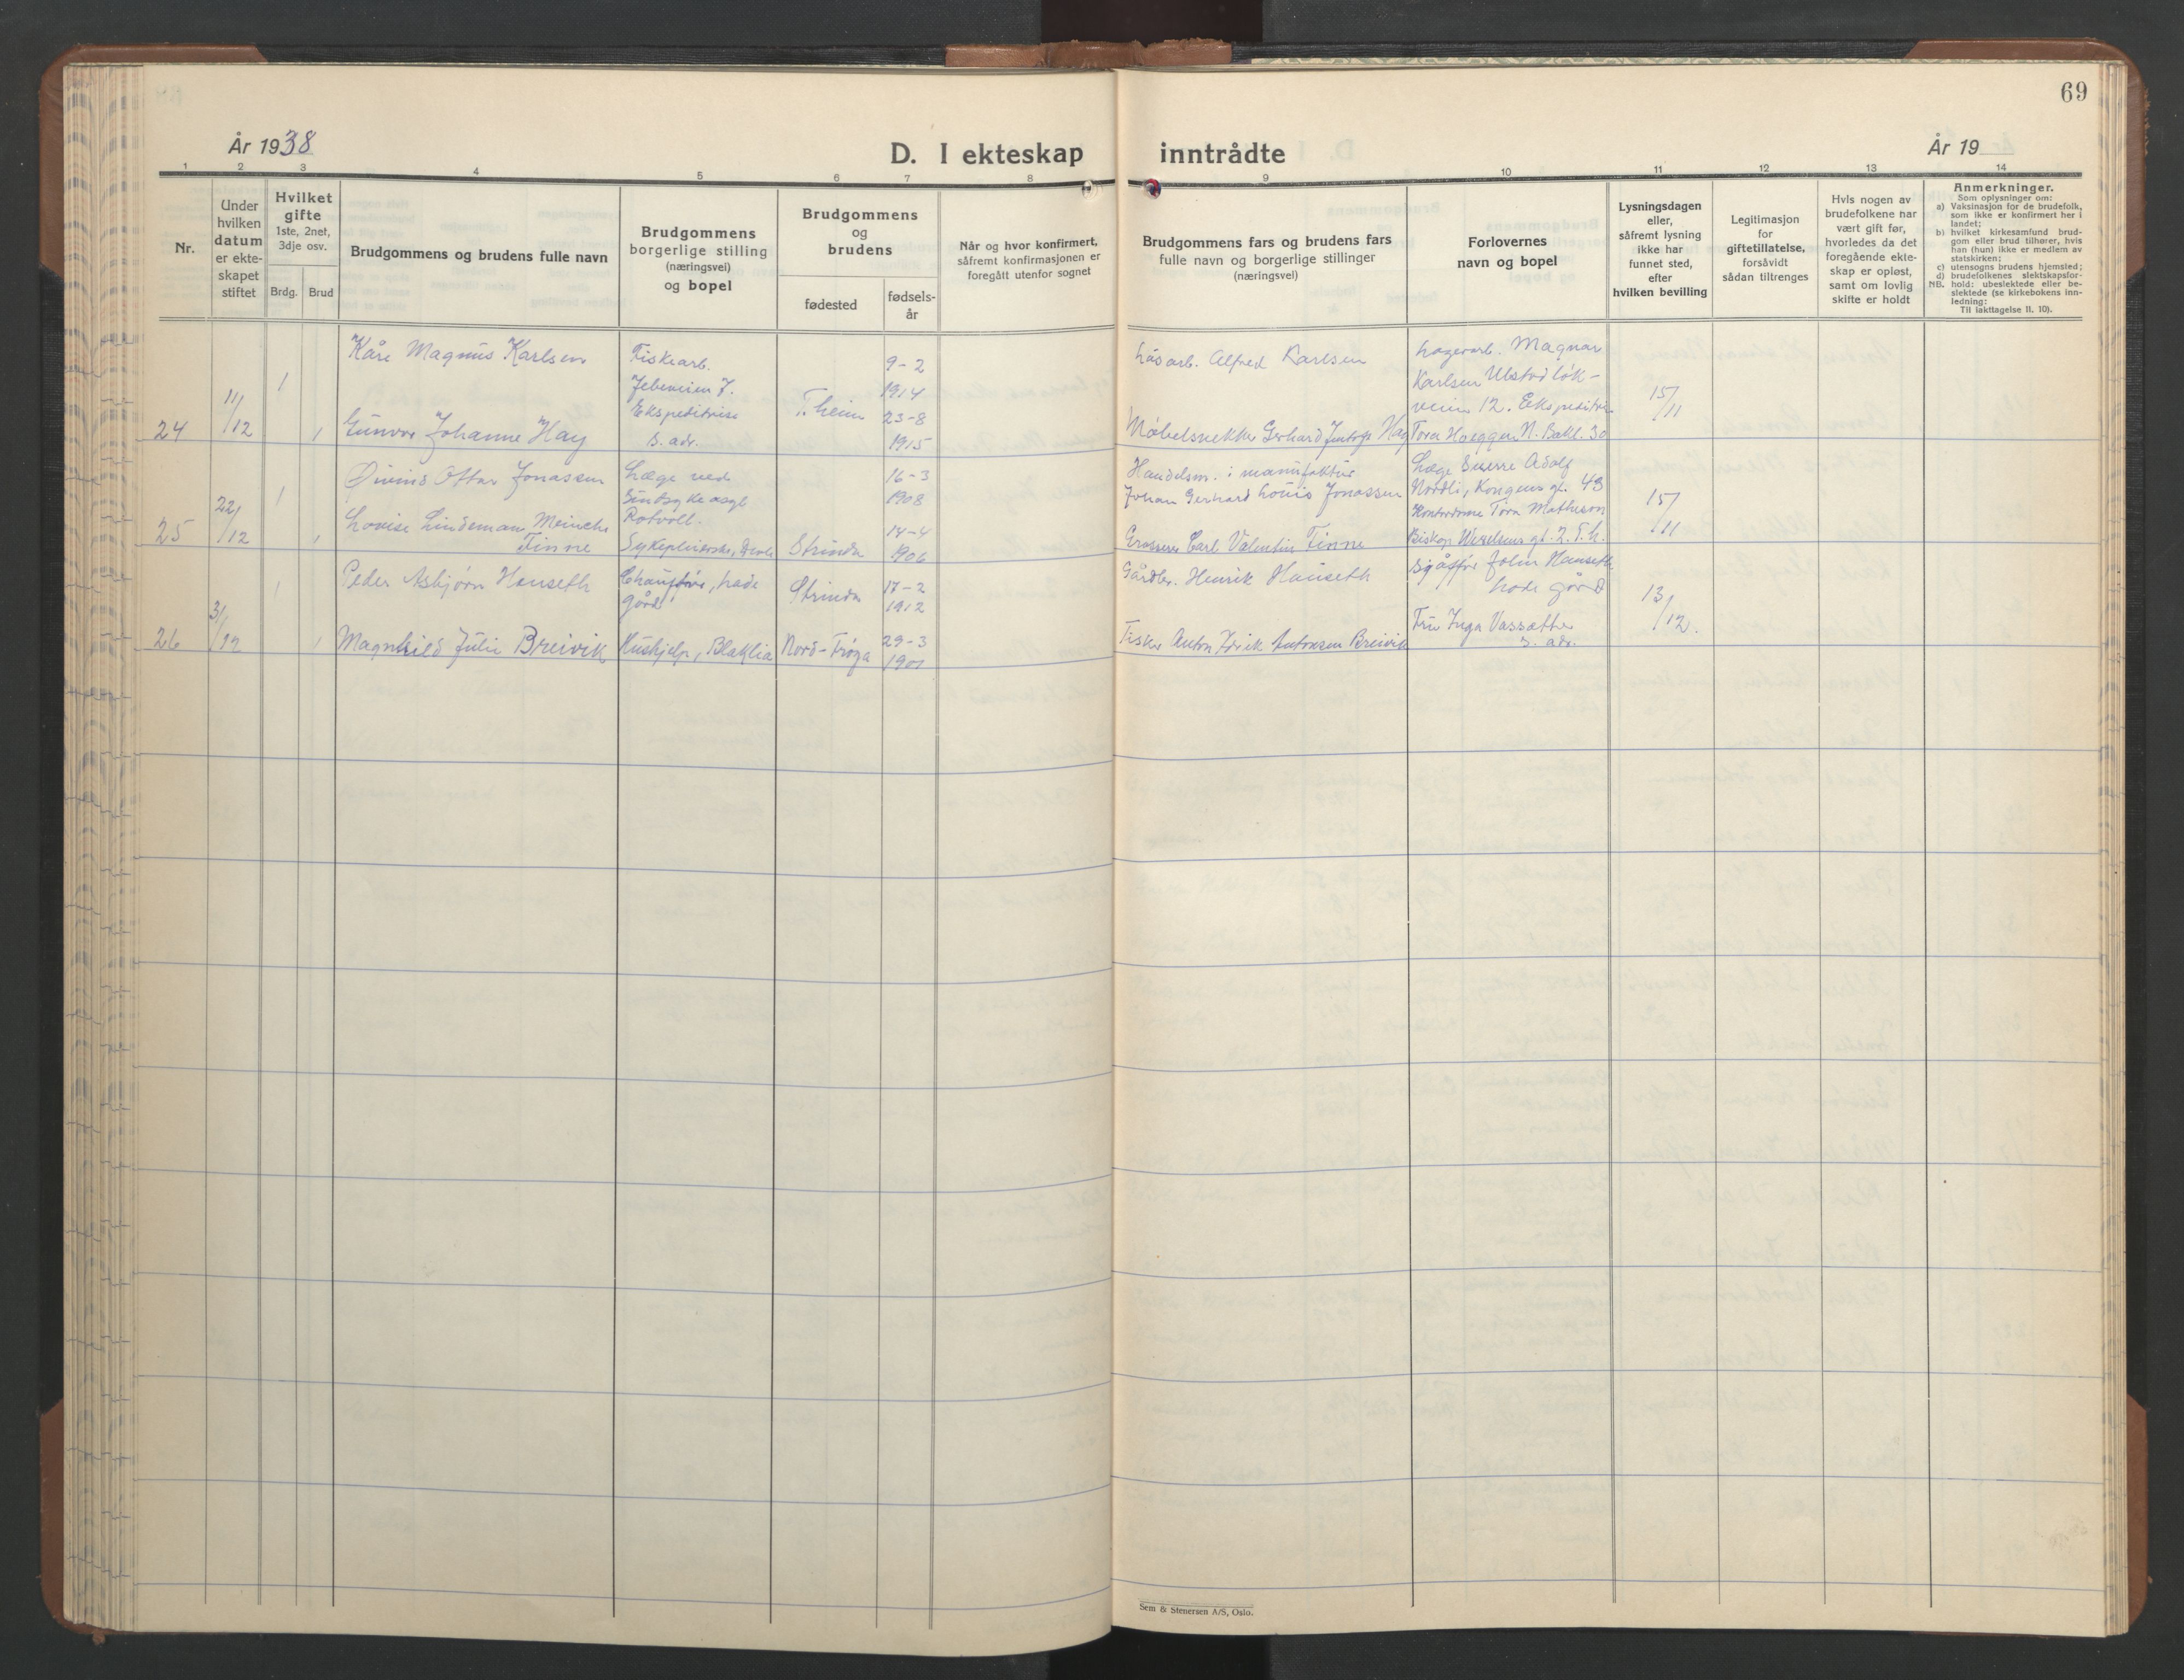 69
År 1938
D. I ekteskap inntrådte
År 19
1 2 3 4 5 6 7 8 9 10 11 12 13 14
Nr.
Under
hvilken
datum
er ekte-
skapet
stiftet
Hvilket
gifte
1ste, 2net,
3dje osv.
Brdg. Brud
Brudgommens og brudens fulle navn
Brudgommens
borgerlige stilling
(næringsvei)
og bopel
Brudgommens
og
brudens
fødested
fødsels-
år
Når og hvor konfirmert,
såfremt konfirmasjonen er
foregått utenfor sognet
Brudgommens fars og brudens fars
fulle navn og borgerlige stillinger
(næringsvei)
Forlovernes
navn og bopel
Lysningsdagen
eller,
såfremt lysning
ikke har
funnet sted,
efter
hvilken bevilling
Legitimasjon
for
giftetillatelse,
forsåvidt
sådan tiltrenges
Hvis nogen av
brudefolkene har
vært gift før,
hvorledes da det
foregående ekte-
skap er opløst,
samt om lovlig
skifte er holdt
Anmerkninger.
Som oplysninger om:
a) Vaksinasjon for de brudefolk,
som ikke er konfirmert her i
landet;
b) hvilket kirkesamfund brud-
gom eller brud tilhører, hvis
han (hun) ikke er medlem av
statskirken;
c) utensogns brudens hjemsted;
d) brudefolkenes slektskapsfor-
NB. hold: ubeslektede eller be-
slektede (se kirkebokens inn-
ledning:
Til iakttagelse II, 10).
24
11/12
1
1
Kåre Magnus Karlsen
Gunvor Johanne Hay
Fiskearb.
Ekspeditrise
s. adr.
T.heim
9-2
1914
23-8
1915
Løsarb. Alfred Karlsen
Møbelsnekker Gerhard Hay
Lagerarb. Magnar
Karlsen Ulstadløk-
veien 12. Ekspeditr.
Tora Hoeggen N. Bakl. 30
15/11
25
22/12
1
1
Øivind Ottar Jonassen
Lovise Lindeman Meincke
Finne
Læge ved
Sindsykeasyl
Rotvoll.
Sykepleierske,
Strinda
16-3
1908
14-4
1906
Handelsm. i manufaktur
Johan Gerhard Louis Jonassen
Grosserer Carl Valentin Finne
Læge Sverre Adolf
Nordli, Kongens gt. 43
Kontordame Tora Matheson
Biskop Wexelsens gt. 2. T.h.
15/11
26
31/12
1
1
Peder Asbjørn Hanseth
Magnhild Julie Breivik
Chauffør, Lade
gård
Hushjelp, Blaklia
Strinda
Nord-Frøya
17-2
1912
29-3
1901
Gårdbr. Henrik Hanseth
Fisker Anton Idrik Antonsen Breivik
Sjåfør John Hanseth
Lade gård
Fru Inga Vassæther
s. adr.
13/12.
Sem & Stenersen A/S, Oslo.